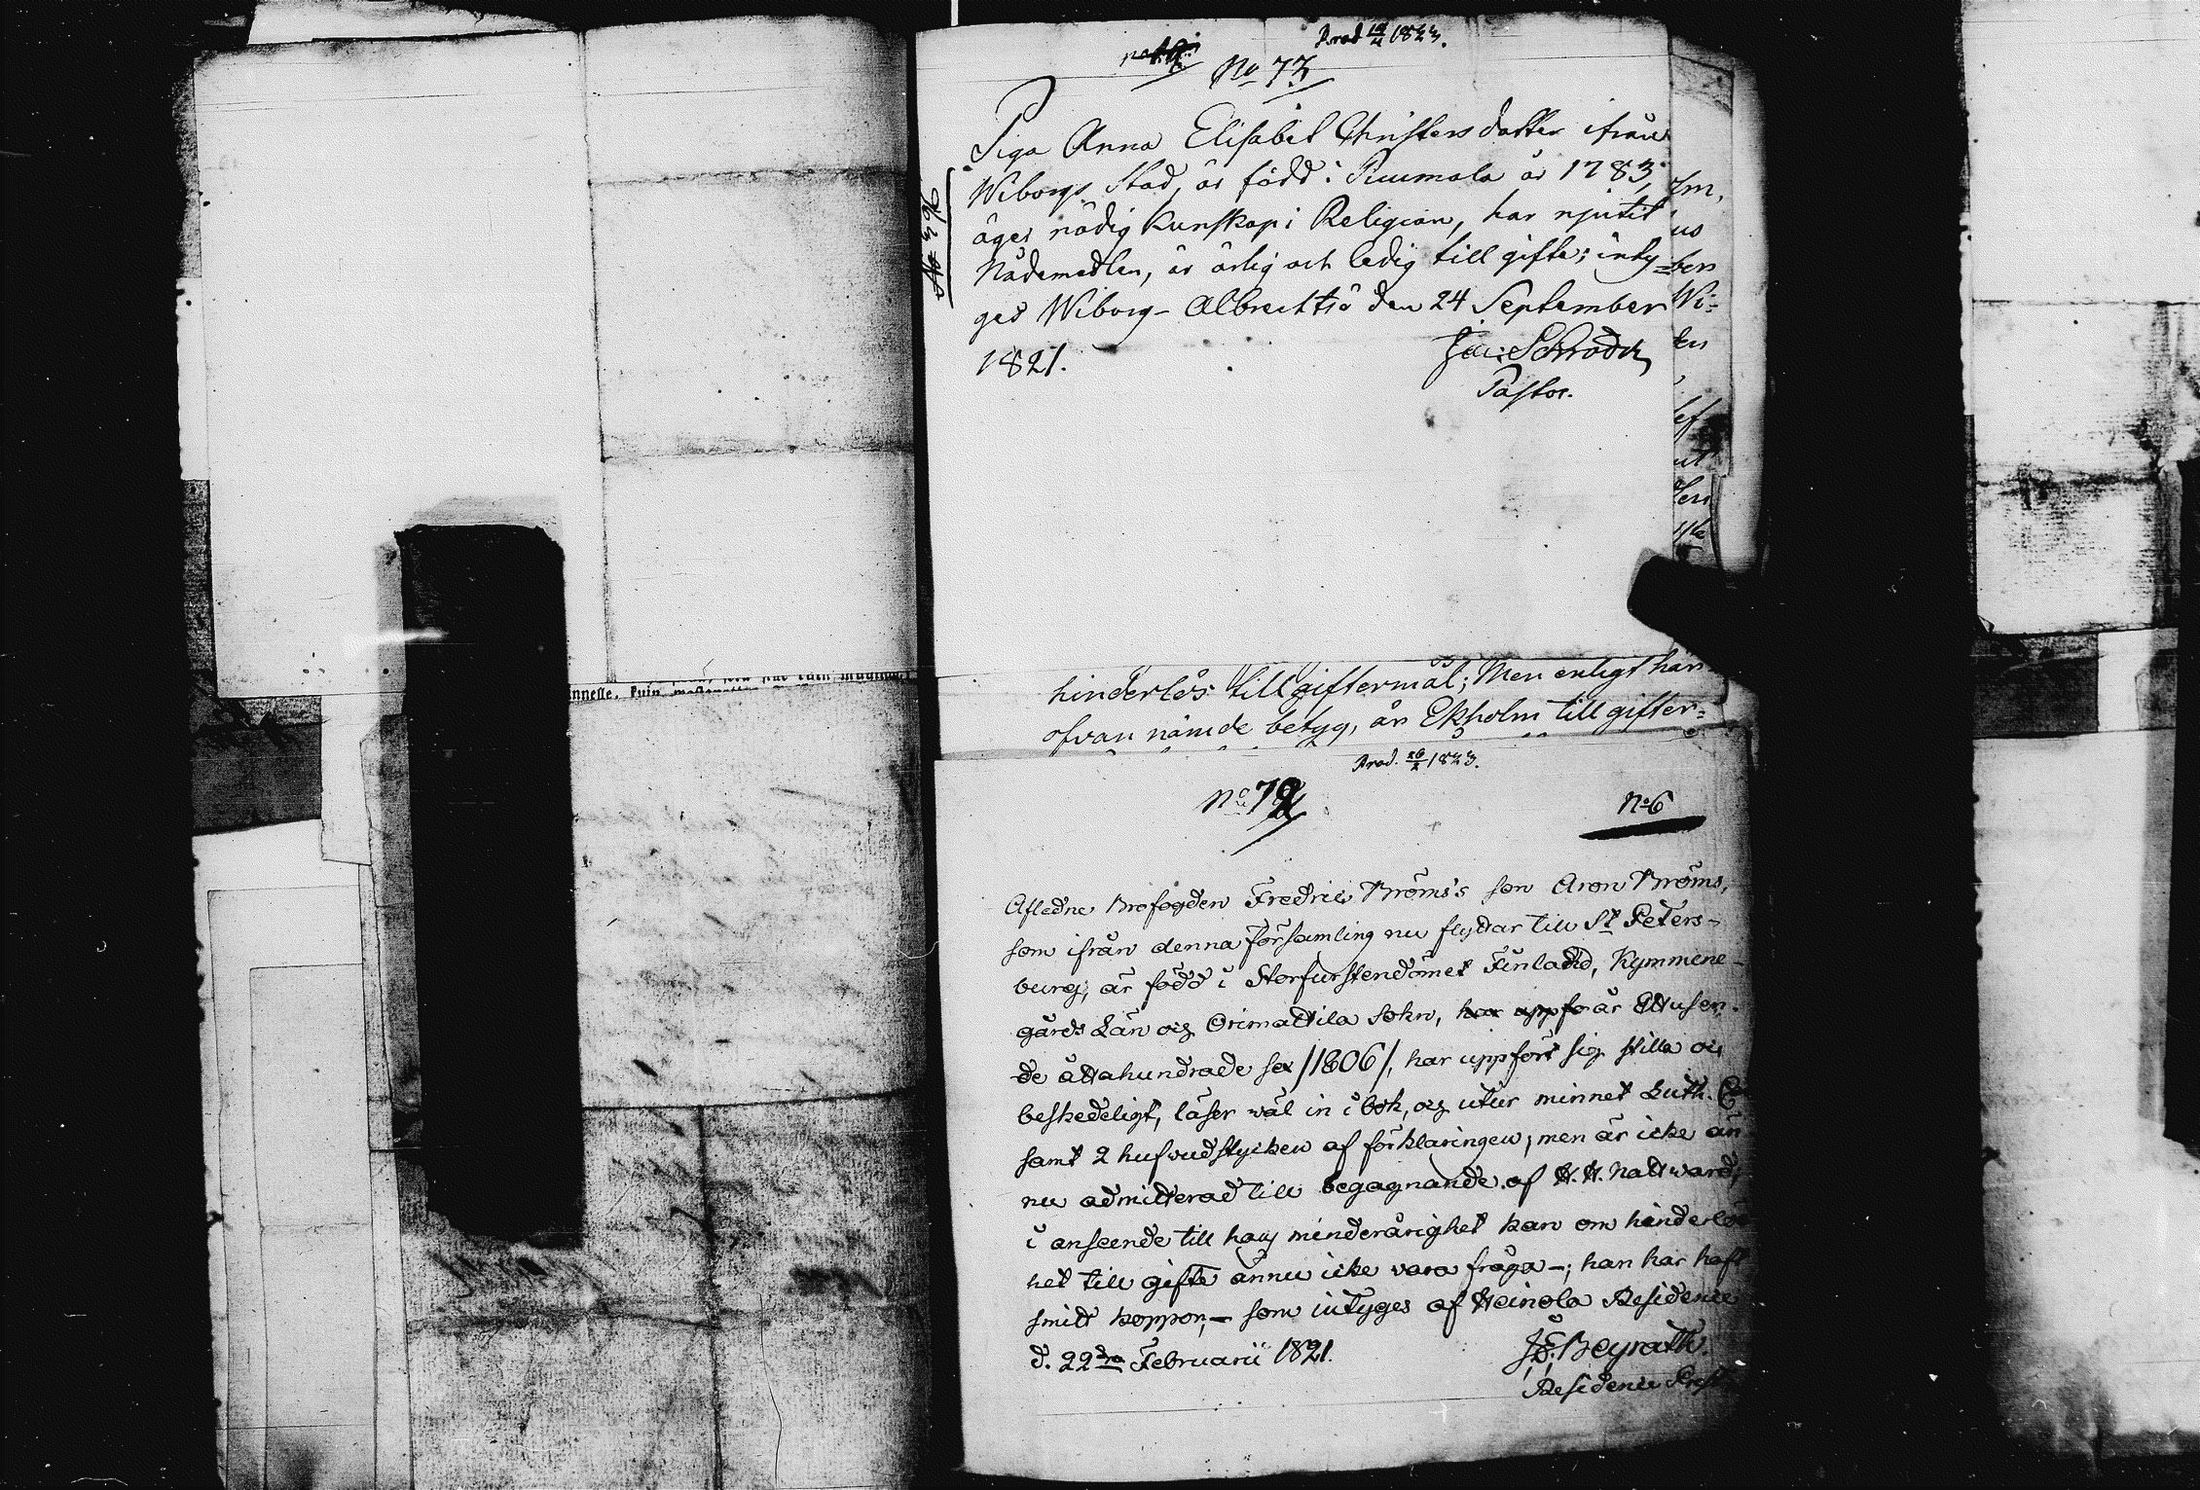 Prod 18/4 1823.
No 73
Piga Anna Elisabet Christersdotter ifrån
Wiborgs Stad, är född i Puumala år 1783,
äger nödig Kunskap i Religion, har njutit
Nådemedlen, är ärlig och ledig till gifte; inty-
gas Wiborg- Albrechtsö den 24 September
1821.
Schröder
Pastor.
No 396
innesse, kuin
hinderlös till giftermål; Men enligt hans
ofvan nämde betyg, är Ekholm till gifter=
Prod. 26/2 1823.
No 72
No 6
Afledne Brofogden Fredric Bröms's son Aron Bröms,
som ifrån denna Församling nu flyttar till St Peters-
burg, är född i Storfurstendömet Finland, Kymmene-
gårds Län och Orimattila Sokn, har uppfo år Ettusen-
de åttahundrade sex /1806/, har uppfört sig stilla och
beskedeligt, läser wäl in i bok, och utur minnet Luth. Ca
samt 2 hufvudstycken af förklaringen, men är icke än
nu admitterad till begagnande af H. H. Nattward,
i anseende till hans minderårighet kan om hinderlös
het till gifte ännu icke vara fråga -; han har haft
smitt koppor, - som intyges af Heinola Residence
d. 22dra Februarii 1821.
J. E. Beyrath.
Residence Prest